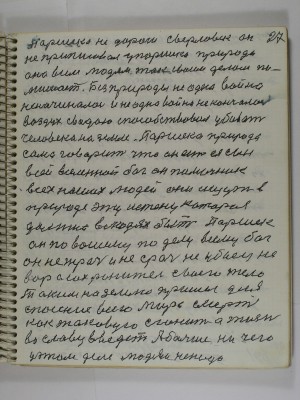 Паршек не дорогой сверловек он 27
не приписовал упаршека природа
оно всем людям таковым делом по-
могает. Без природы не одна война
неначиналась и не одна война не кончалась
воздух сводою способствовал убивать
человека на земле. Паршека природа
сама говорит что он есть я сын
всей вселенной бог он помошник
всех наших людей они ищут в
природе эту истену которая
должна в людях быть Паршек
он по вашему по делу всему бог
он не прач и не срач не убиец не
вор а сохранител своего тело
Таким на землю пришел для
спасения всего мира смерть
как таковую сгонит а жизн
во славу введет А больше ни чего
у этом деле людям ненадо